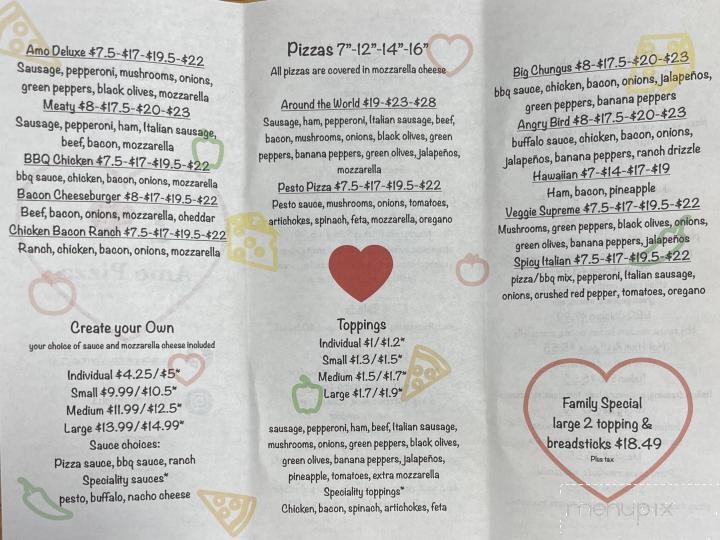 Amo Deluxe $7.5-$17-$19.5-$22
Sausage, pepperoni, mushrooms, onions,
green peppers, black olives, mozzarella
Meaty $8-$17.5-$20-$23
Sausage, pepperoni, ham, Italian sausage,
beef, bacon, mozzarella
BBQ Chicken $7.5-$17-$19.5-$22
bbq sauce, chicken, bacon, onions, mozzarella
Bacon Cheeseburger $8-$17-$19.5-$22
Beef, bacon, onions, mozzarella, cheddar
Chicken Bacon Ranch $7.5-$17-$19.5-$22
Ranch, chicken, bacon, onions, mozzarella
Create your Own
your choice of sauce and mozzarella cheese included
Individual $4.25/$5*
Small $9.99/$10.5*
Medium $11.99/$12.5*
Large $13.99/$14.99*
Sauce choices:
Pizza sauce, bbq sauce, ranch
Speciality sauces*
pesto, buffalo, nacho cheese
Pizzas 7"-12"-14"-16"
All pizzas are covered in mozzarella cheese
Around the World $19-$23-$28
Sausage, ham, pepperoni, Italian sausage, beef,
bacon, mushrooms, onions, black olives, green
peppers, banana peppers, green olives, jalapeños,
mozzarella
Pesto Pizza $7.5-$17-$19.5-$22
Pesto sauce, mushrooms, onions, tomatoes,
artichokes, spinach, feta, mozzarella, oregano
Toppings
Individual $1/$1.2*
Small $1.3/$1.5*
Medium $1.5/$1.7*
Large $1.7/$1.9*
sausage, pepperoni, ham, beef, Italian sausage,
mushrooms, onions, green peppers, black olives,
green olives, banana peppers, jalapeños,
pineapple, tomatoes, extra mozzarella
Speciality toppings*
Chicken, bacon, spinach, artichokes, feta
Big Chungus $8-$17.5-$20-$23
bbq sauce, chicken, bacon, onions, jalapeños,
green peppers, banana peppers
Angry Bird $8-$17.5-$20-$23
buffalo sauce, chicken, bacon, onions,
jalapeños, banana peppers, ranch drizzle
Hawaiian $7-$14-$17-$19
Ham, bacon, pineapple
Veggie Supreme $7.5-$17-$19.5-$22
Mushrooms, green peppers, black olives, onions,
green olives, banana peppers, jalapeños
Spicy Italian $7.5-$17-$19.5-$22
pizza/bbq mix, pepperoni, Italian sausage,
onions, crushed red pepper, tomatoes, oregano
Family Special
large 2 topping &
breadsticks $18.49
Plus tax
menupix